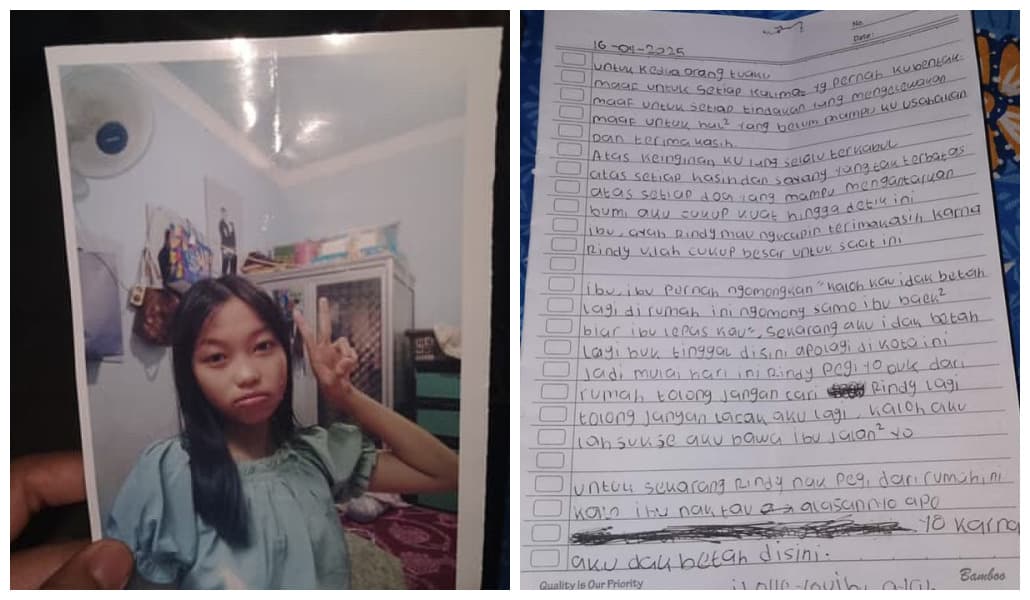 No.
Date:
16-04-2025
untuk kedua orang tuaku
maaf untuk setiap kalimat yg pernah kubentak
maaf untuk setiap tindakan yang mengecewakan
maaf untuk hal² yang belum mampu ku usahakan
Dan terima kasih
Atas keinginan ku yang selalu terkabul
atas setiap kasih dan sayang yang tak terbatas
atas setiap doa yang mampu mengantarkan
bumi aku cukup kuat hingga detik ini
ibu, ayah Rindy mau ngucapin terimakasih karna
Rindy udah cukup besar untuk saat ini
ibu, ibu pernah ngomongkan "kaloh kau idak betah
lagi di rumah ini ngomong samo ibu baek²
biar ibu lepas kau", sekarang aku idak betah
lagi buk tinggal disini apolagi di kota ini
Jadi mulai hari ini Rindy pegi yo buk dari
rumah tolong jangan cari Rindy lagi
tolong jangan lacak aku lagi, kaloh aku
lah sukse aku bawa ibu jalan² yo
untuk sekarang Rindy nak pegi dari rumah ini
kalo ibu nak tau alasannyo apo
yo karna
aku dak betah disini.
Quality is Our Priority
Bamboo